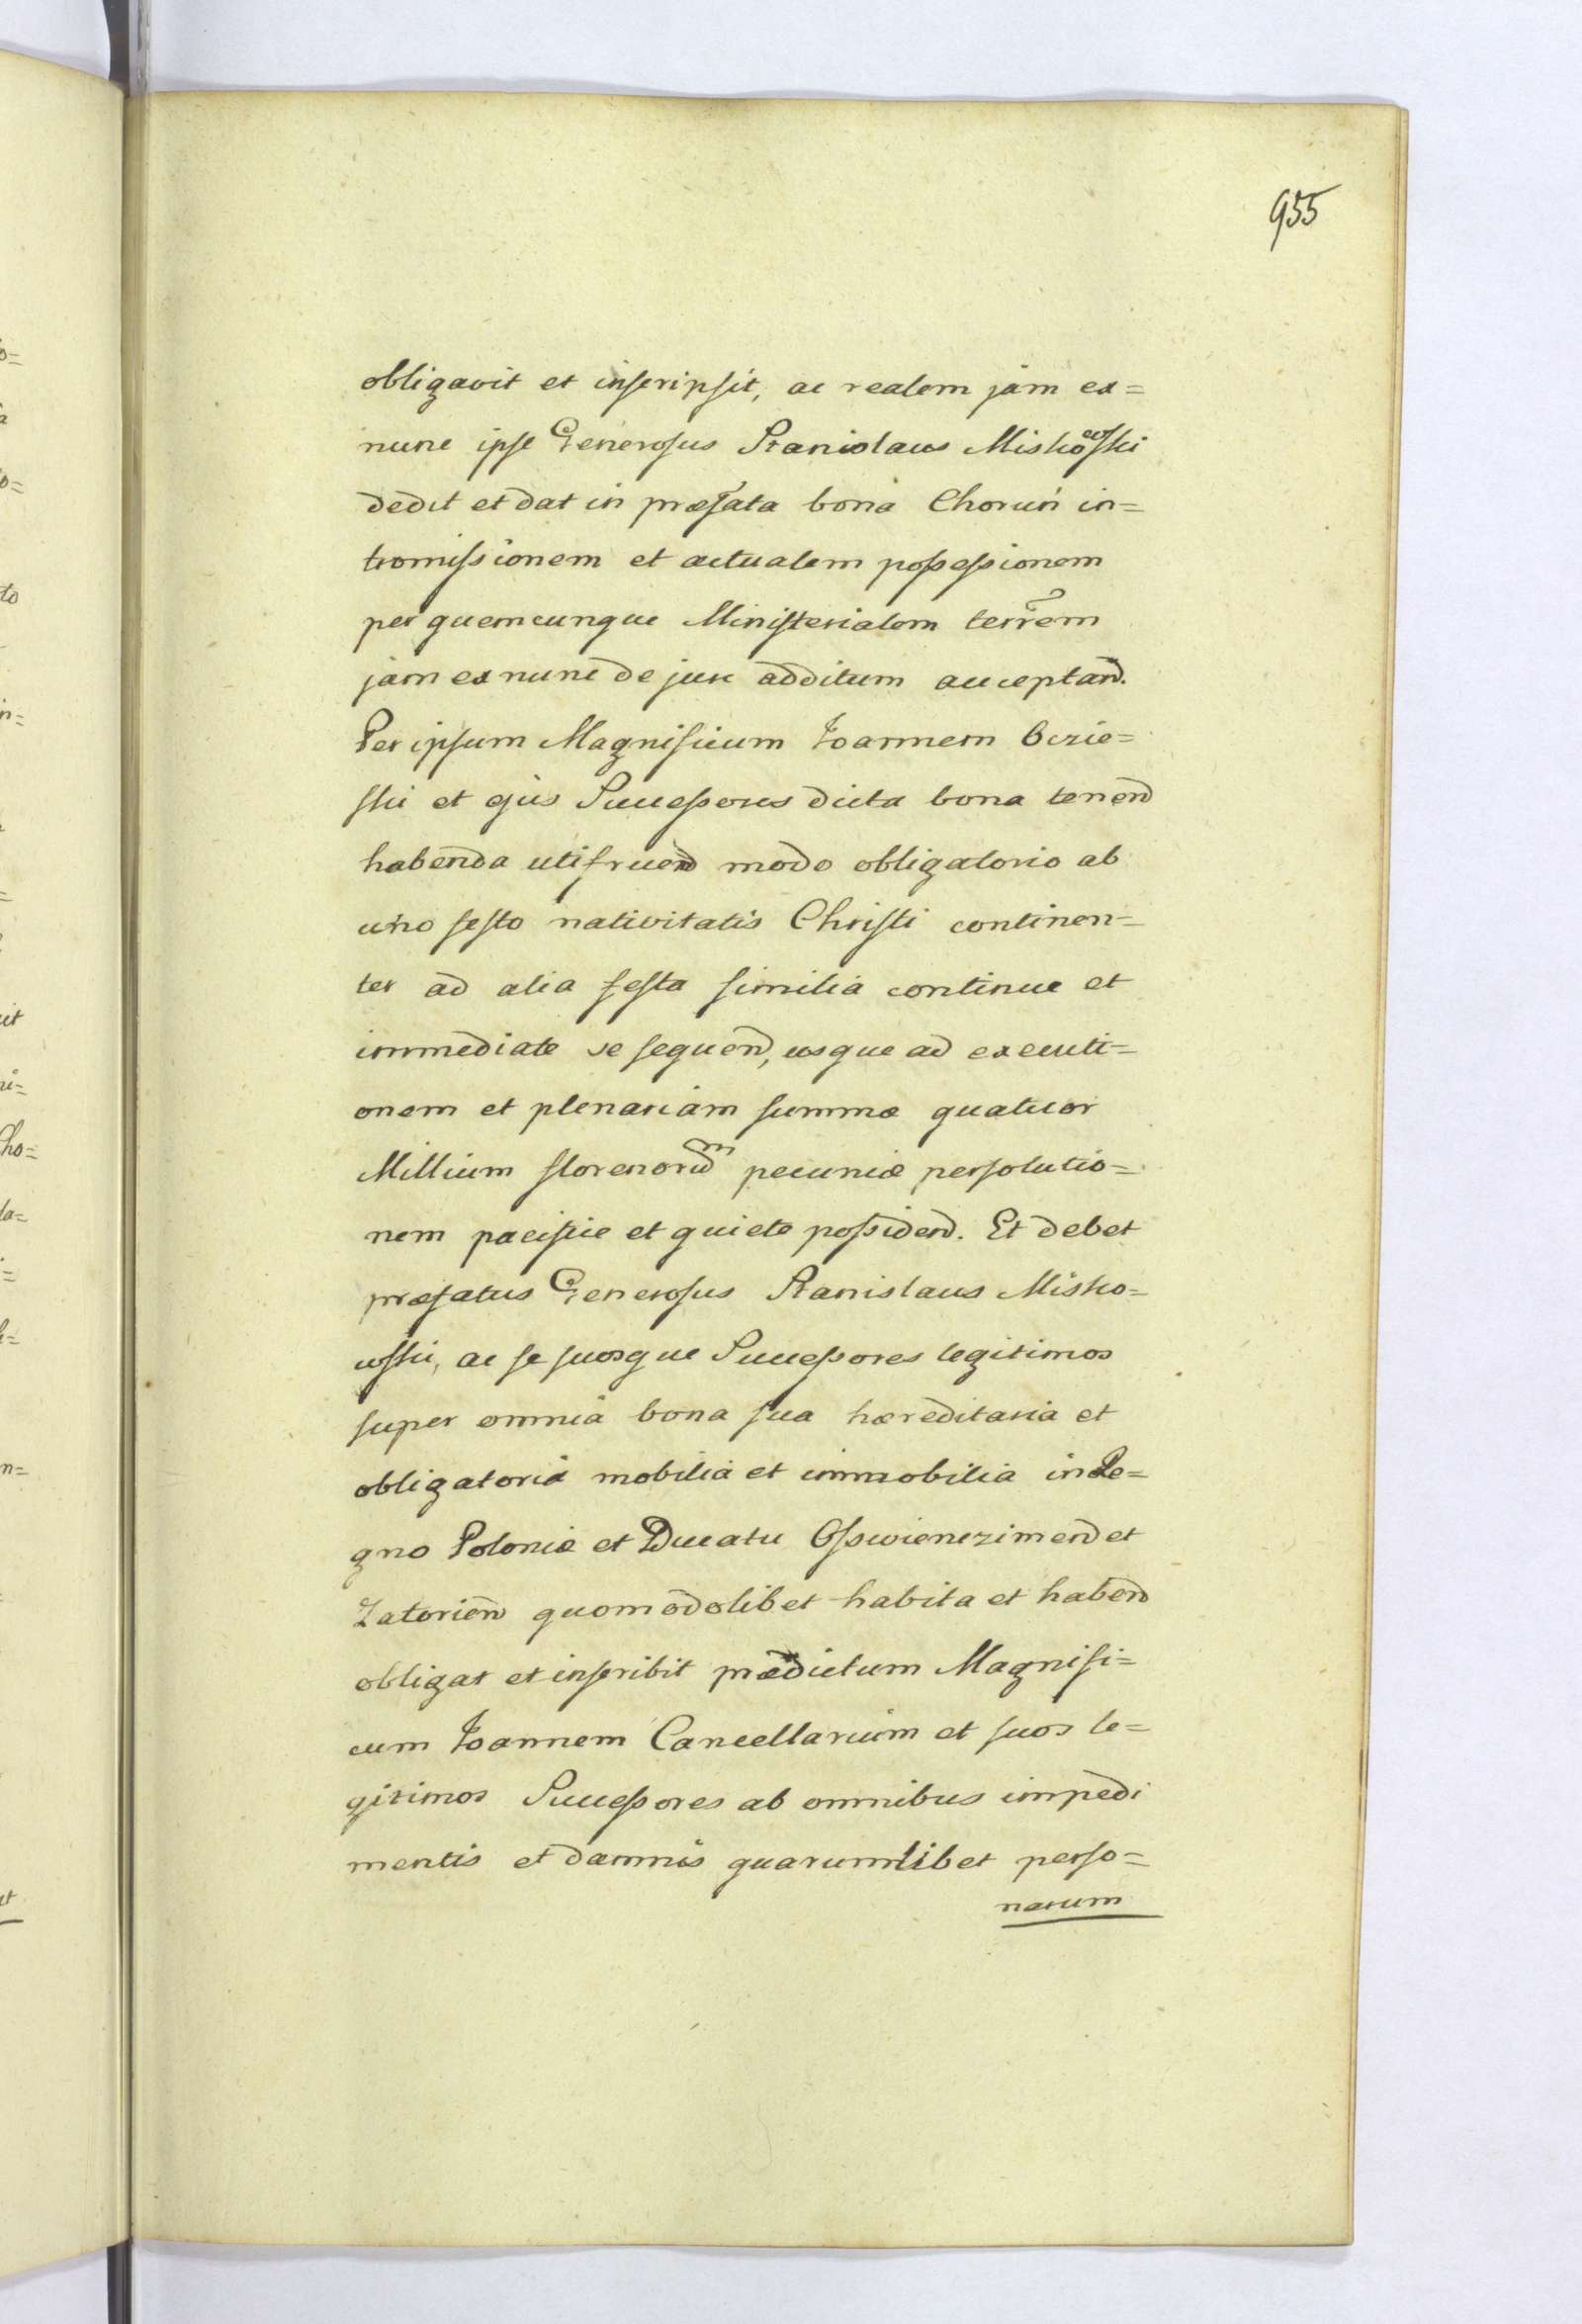 955
obligavit et inscripsit, ac realem jam ex=
nunc ipse Generosus Stanislaus Miskowski
dedit et dat in præfata bona Choruń in=
tromissionem et actualem possessionem
per quemcunque Ministerialem terrem
jam ex nunc de jure additum acceptand.
Per ipsum Magnificum Joannem Oczie=
ski et ejus Successores dicta bona tenend
habenda utifruend modo obligatorio ab
uno festo nativitatis Christi continen=
ter ad alia festa similia continue et
immediate se sequend, usque ad executi=
onem et plenariam summæ quatuor
Millium florenorum pecuniæ persolutio=
nem pacifice et quiete possidend. Et debet
præfatus Generosus Stanislaus Misko=
wski, ac se suosque Successores legitimos
super omnia bona sua hæreditaria et
obligatoria mobilia et immobilia in Re=
gno Poloniæ et Ducatu Osswienczimend et
Zatorien quomodolibet habita et habend
obligat et inscribit prædictum Magnifi=
cum Joannem Cancellarium et suos le=
gitimos Successores ab omnibus impedi
mentis et damnis quarumlibet perso=
narum